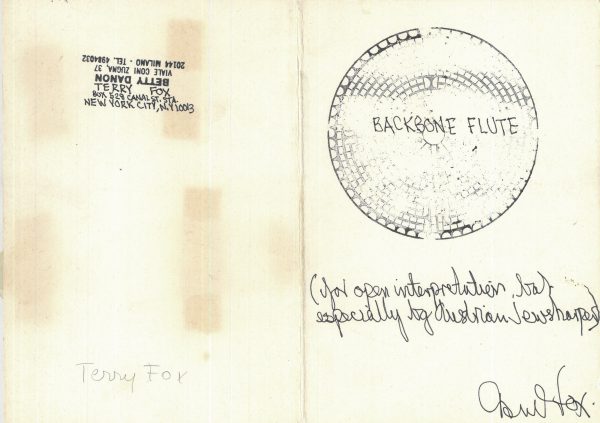 BETTY DANON
VIALE CONI ZUGNA, 37
20144 MILANO - TEL. 4984032
TERRY FOX
BOX 529 CANAL ST. STA.
NEW YORK CITY, N.Y. 10013
Terry Fox
BACKBONE FLUTE
(for open interpretation, but
especially by Austrian Jewsharper)
Fox.